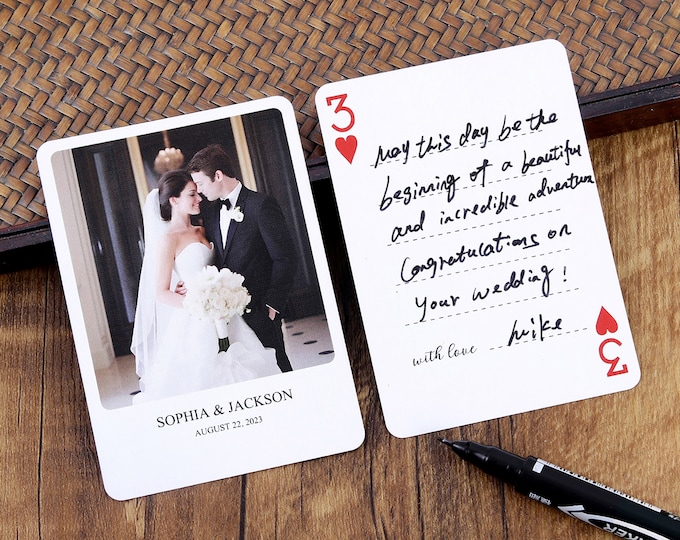 SOPHIA & JACKSON
AUGUST 22, 2023
3
May this day be the
beginning of a beautiful
and incredible adventure
Congratulations on
your wedding!
with love Mike
3